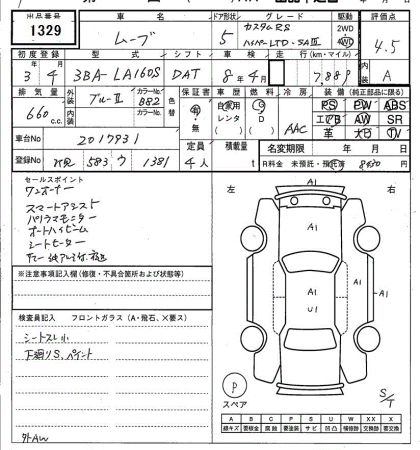 出品番号 車名 ドア形状 グレード 駆動 評価点
1329 ムーブ 5 カスタムRS ハイパーLTD・SAⅢ 2WD 4WD 4.5
初度登録 型式 シフト 車検 走行(km・マイル) 内装
3年4月 3BA-LA160S DAT 8年4月 A
排気量 外装 カラーNo. 色替 保証書 車歴 燃料 冷房 装備(純正部品に限る)
660 c.c. ブルーⅡ B82 有 無 自家用 レンタ G D AAC PS PW ABS
エアB AW SR
革 TV
車台No 2017931
定員 積載量 名変期限 年 月 日
登録No 583 ウ 1381 4人 t R料金 未預託・預託済
セールスポイント 左 右
ワンオーナー
スマートアシスト
パノラマモニター
オートハイビーム
シートヒーター
※注意事項記入欄(修復・不具合箇所および状態等)
検査員記入 フロントガラス(A・飛石、X要ス)
シートスレ小
下廻りS、ペイント
外AW
A1
A1
A1
A1
U1
P
スペア
S/T
A B C P S U W X XX
線キズ 要板金 腐蝕 要塗装 サビ 凹凸 補修跡 要交換 交換済